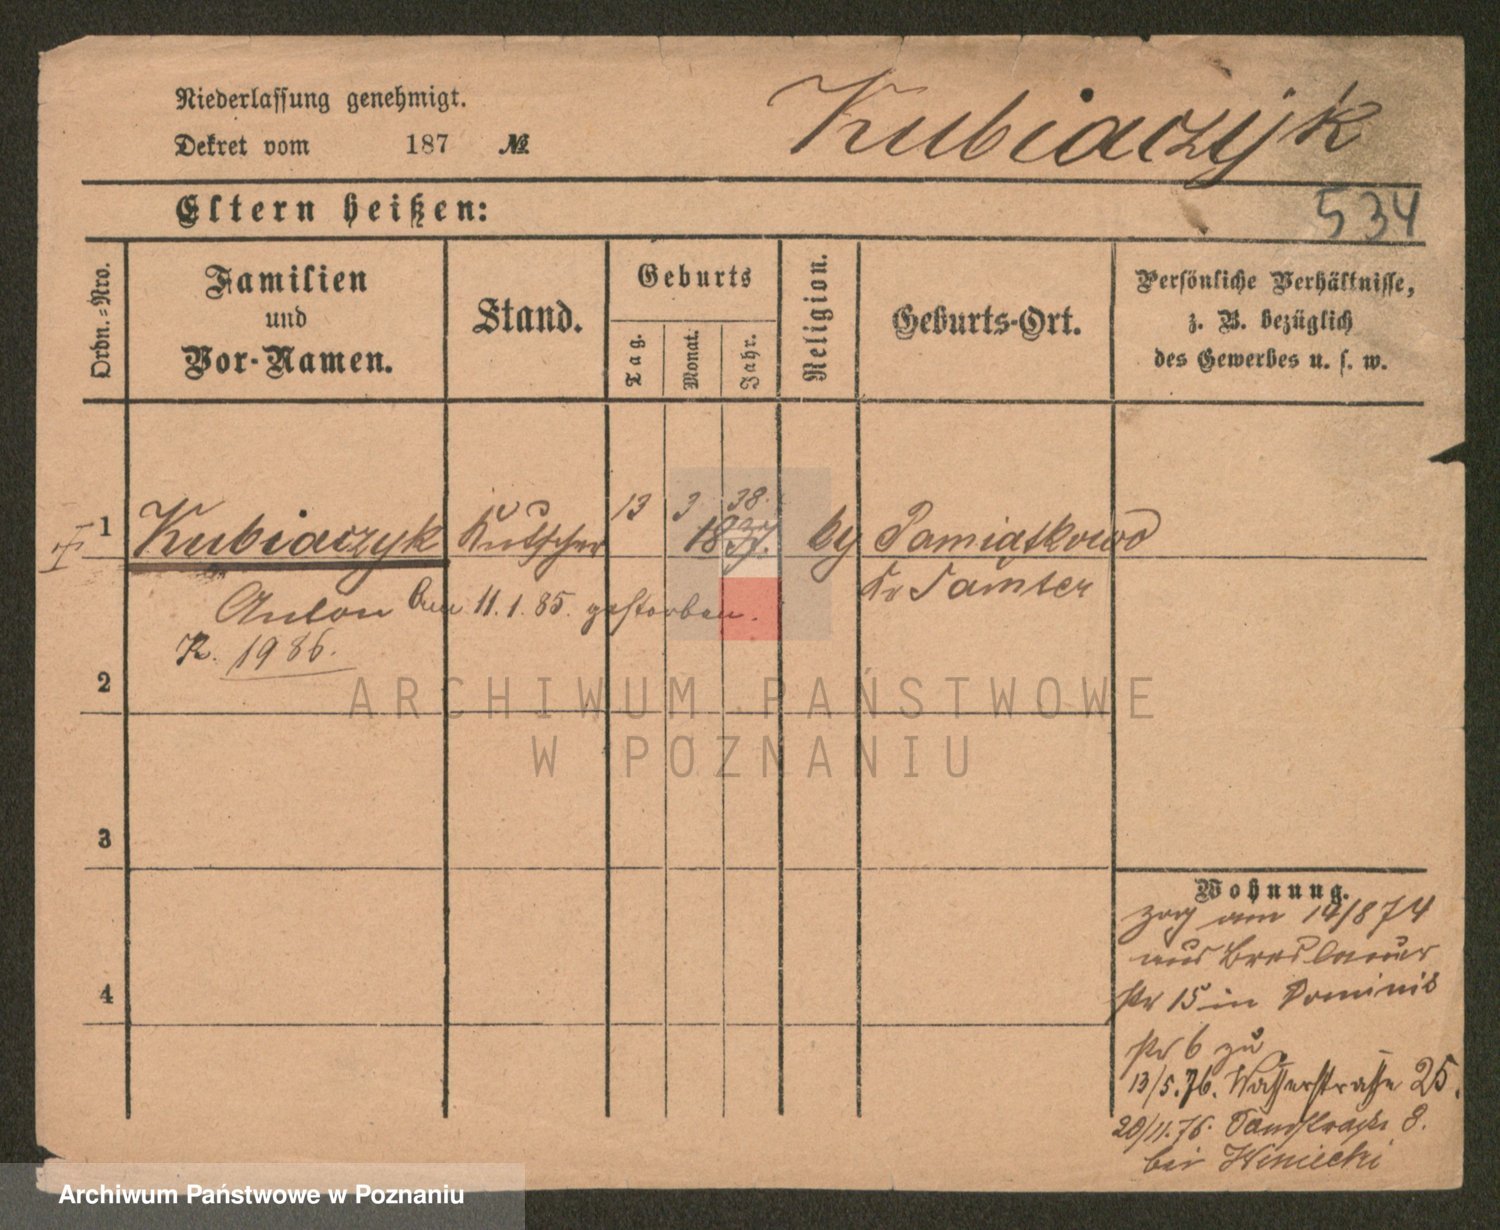 Niederlassung genehmigt.
Dekret vom 187 №
Kubiaczyk
Eltern heißen:
534
Ordn.-Nro.
Familien
und
Vor-Namen.
Stand.
Geburts
Tag.
Monat.
Jahr.
Religion.
Geburts-Ort.
Persönliche Verhältnisse,
z. B. bezüglich
des Gewerbes u. s. w.
1 Kubiaczyk Kutscher 13 3 38. 1837. Pamiątkowo
Kr Samter
Anton Am 11.1.85. gestorben.
R. 1986.
2
3
4
Wohnung.
zog am 14/874
aus Breslauer
str 15 in Dominik
str 6 zu
13/5.76. Wasserstraße 25.
20/11.76. Sandstraße 8.
bei Winiecki
ARCHIWUM PAŃSTWOWE
W POZNANIU
Archiwum Państwowe w Poznaniu